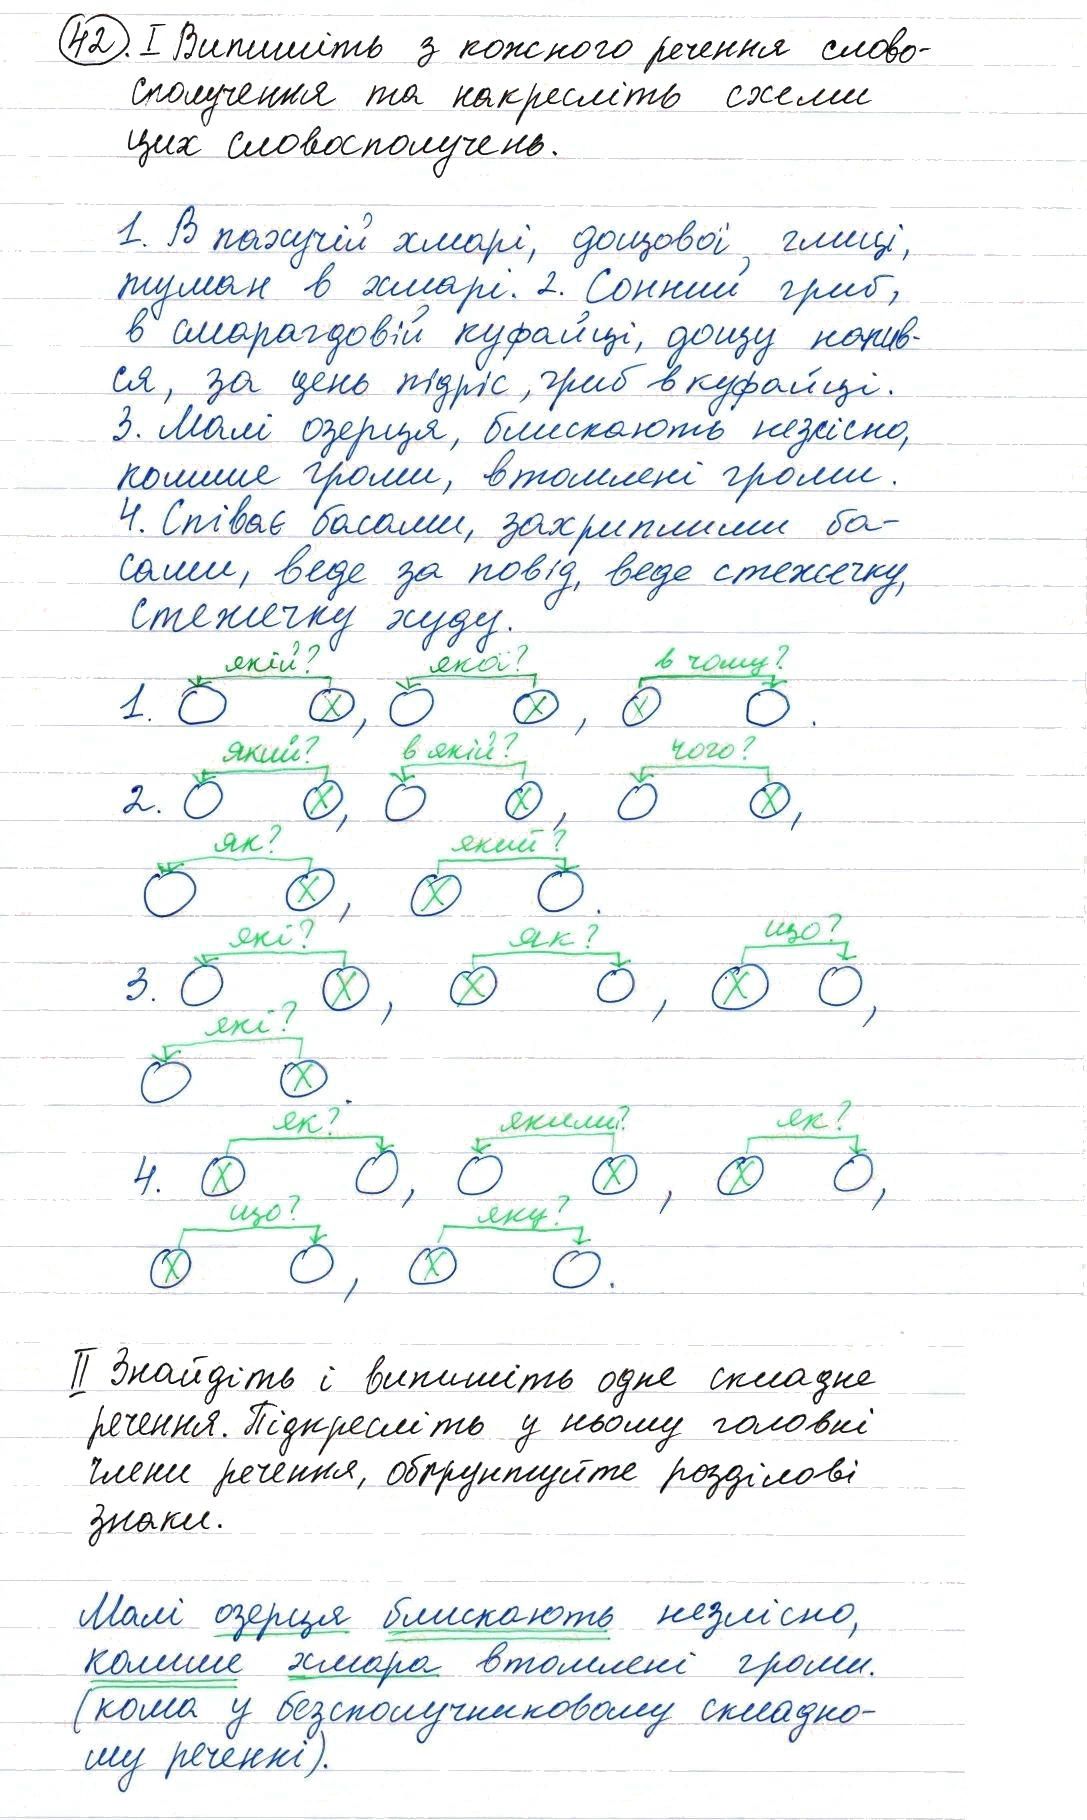 42. I Випишіть з кожного речення слово-
сполучення та накресліть схеми
цих словосполучень.
1. В пахучій хмарі, дощової глиці,
туман в хмарі. 2. Сонний гриб,
в смарагдовій куфайці, дощу напив-
ся, за день підріс, гриб в куфайці.
3. Малі озерця, блискають незлісно,
колише громи, втомлені громи.
4. Співає басами, захриплими ба-
сами, веде за повід, веде стежечку,
стежечку худу.
якій? якої? в чому?
1. X, X, X.
який? в якій? чого?
2. X, X, X,
як? який?
X, X.
які? як? що?
3. X, X, X,
які?
X.
як? якими? як?
4. X, X, X,
що? яку?
X, X.
II Знайдіть і випишіть одне складне
речення. Підкресліть у ньому головні
члени речення, обґрунтуйте розділові
знаки.
Малі озерця блискають незлісно,
колише хмара втомлені громи.
(кома у безсполучниковому складно-
му реченні).